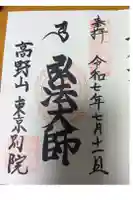 奉拝
令和七年七月十一日
弘法大師
高野山
東京別院